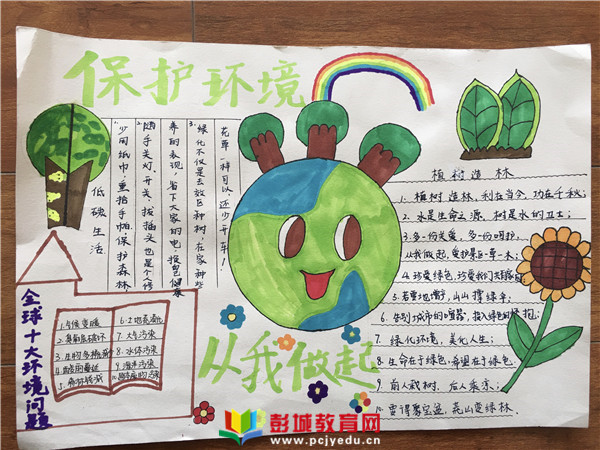 保护环境
低碳生活
1.少用纸巾,重拾手帕,保护森林
2.随手关灯、开关、拔插头也是个人修
养的表现,省下大家的电
3.绿化不仅是去郊区种树,在家种些
花草一样可以,还少开车!
植树造林
1.植树造林,利在当今,功在千秋;
2.水是生命之源,树是水的卫士;
3.多一份关爱,多一份呵护,
从我做起,爱护身边一草一木;
4.珍爱绿色,珍爱我们
5.若要地,山山撑绿伞;
6.告别城市的喧嚣,投入绿色的怀抱;
7.绿化环境,美化人生;
8.生命在于绿色,希望在于绿色;
9.前人栽树,后人乘凉;
10.要得聚宝盆,荒山变绿林.
全球十大环境问题
1.气候变暖
2.臭氧层破坏
3.生物多样
4.酸雨蔓延
5.森林锐减
6.土地荒漠化
7.大气污染
8.水体污染
9.海洋污染
10.
从我做起
彭城教育网
www.pcjyedu.cn